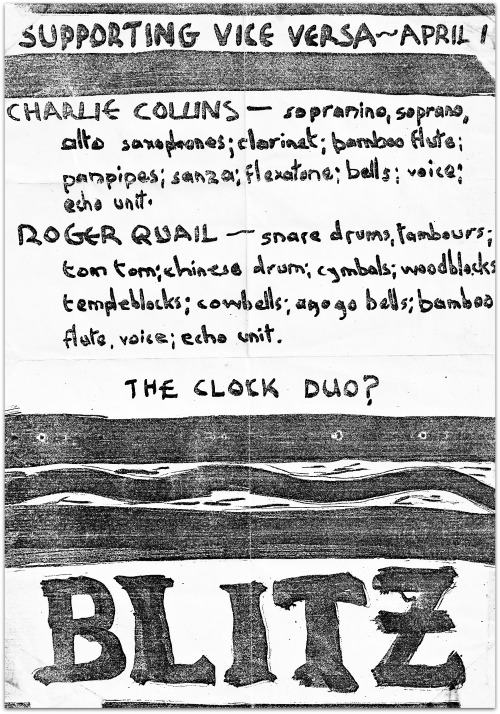 SUPPORTING VICE VERSA~APRIL 1
CHARLIE COLLINS — sopranino, soprano,
alto saxophones; clarinet; bamboo flute;
panpipes; sanza; flexatone; bells; voice;
echo unit.
ROGER QUAIL — snare drums, tambours;
tom tom; chinese drum; cymbals; woodblocks
templeblocks; cowbells; agogo bells; bamboo
flute, voice; echo unit.
THE CLOCK DUO?
BLITZ